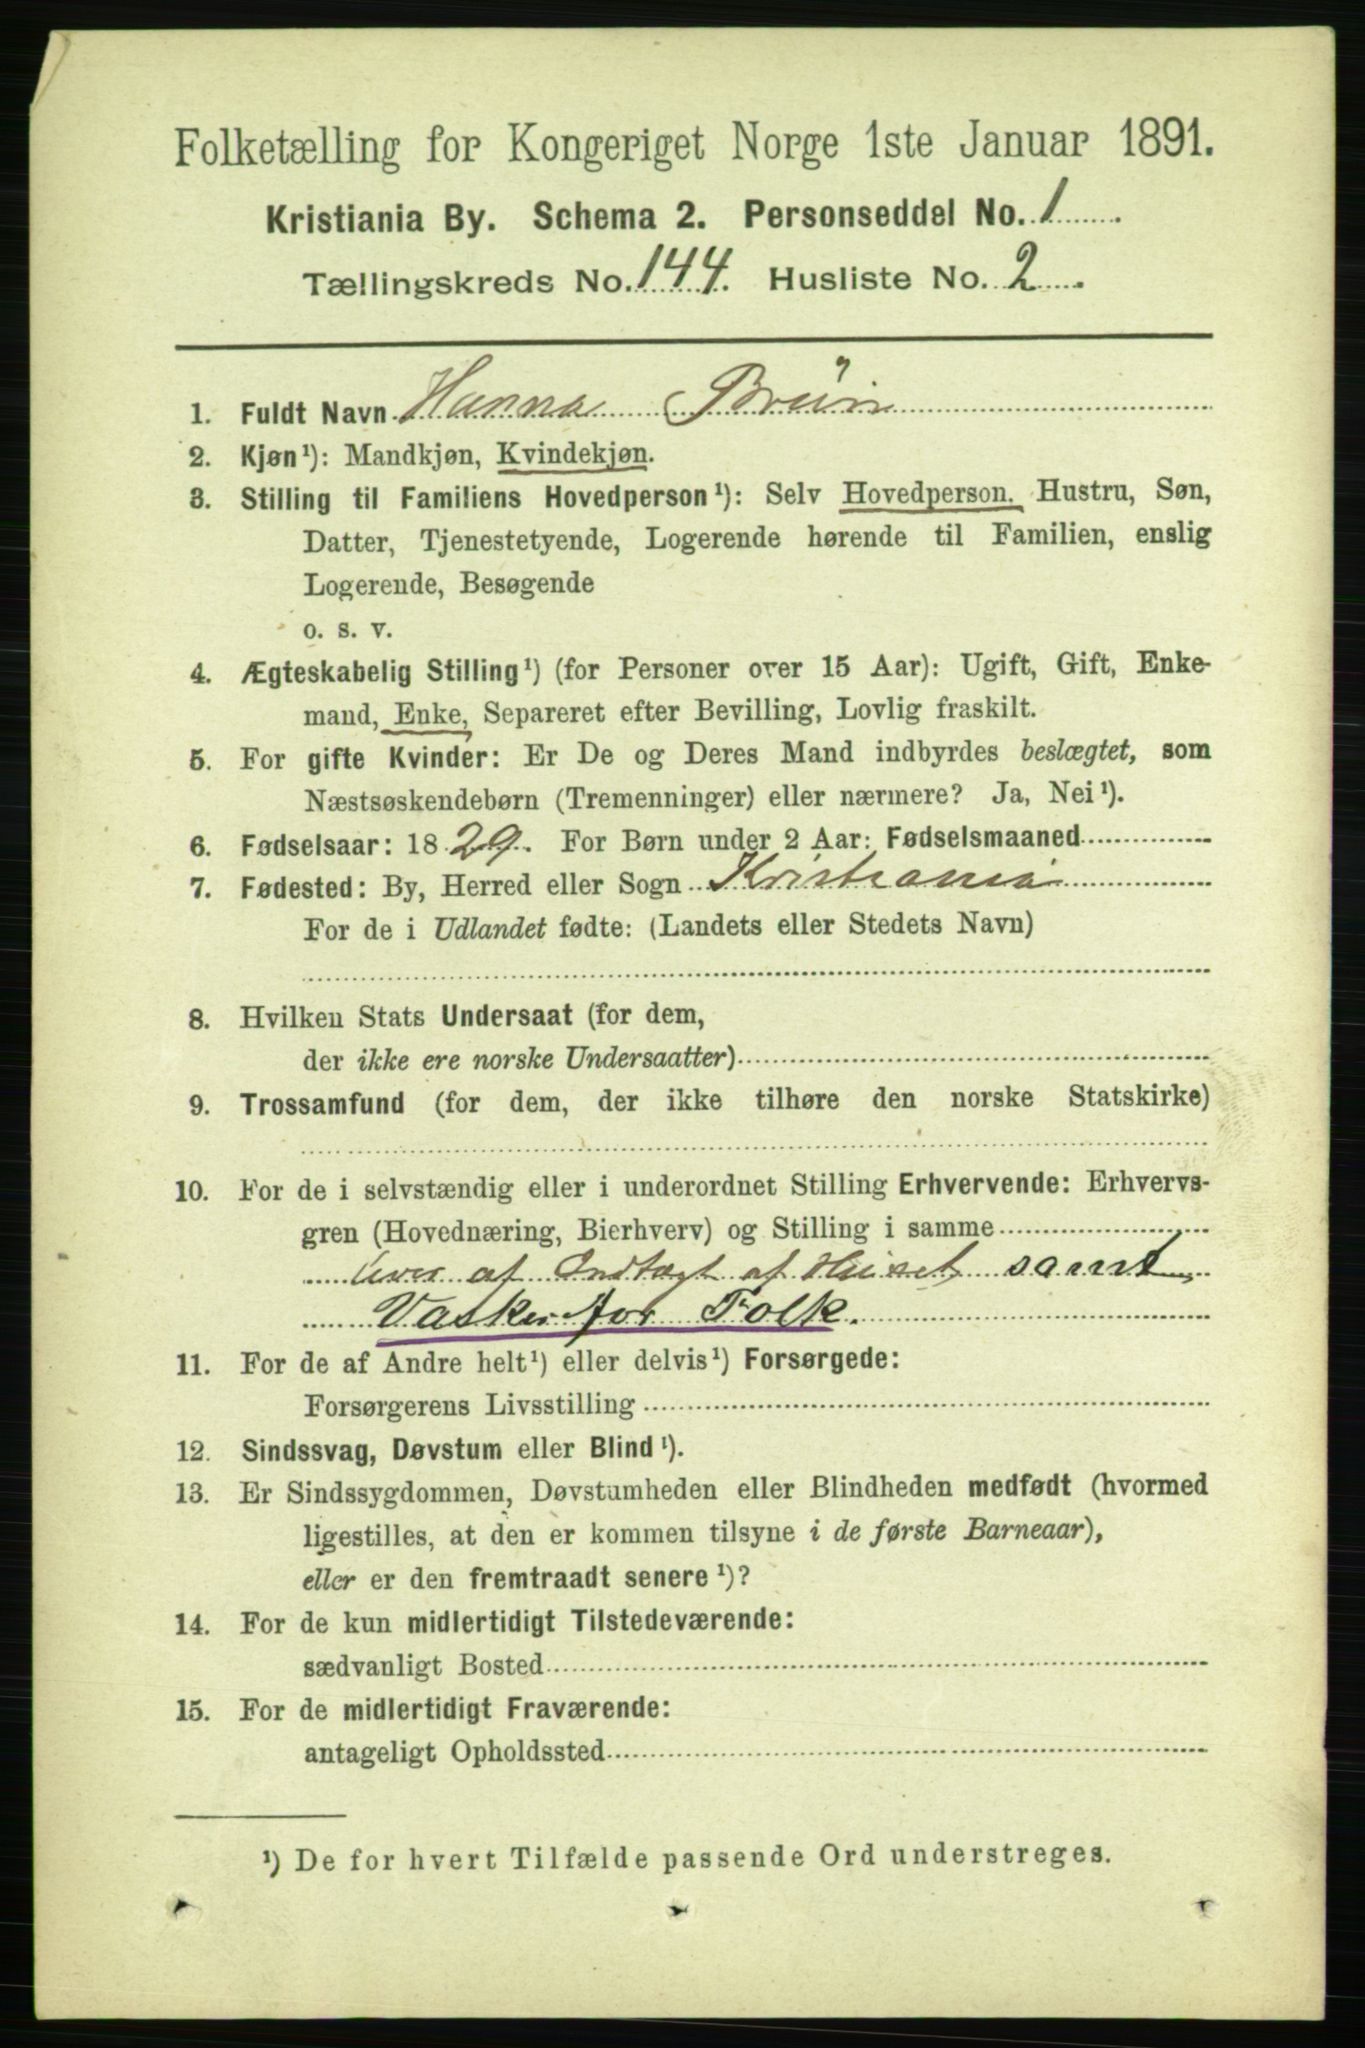 Folketælling for Kongeriget Norge 1ste Januar 1891.
Kristiania By. Schema 2. Personseddel No. 1
Tællingskreds No. 144. Husliste No. 2
1. Fuldt Navn Hanna Brun
2. Kjøn¹): Mandkjøn, Kvindekjøn.
3. Stilling til Familiens Hovedperson¹): Selv Hovedperson. Hustru, Søn,
Datter, Tjenestetyende, Logerende hørende til Familien, enslig
Logerende, Besøgende
o. s. v.
4. Ægteskabelig Stilling¹) (for Personer over 15 Aar): Ugift, Gift, Enke-
mand, Enke, Separeret efter Bevilling, Lovlig fraskilt.
5. For gifte Kvinder: Er De og Deres Mand indbyrdes beslægtet, som
Næstsøskendebørn (Tremenninger) eller nærmere? Ja, Nei¹).
6. Fødselsaar: 1829. For Børn under 2 Aar: Fødselsmaaned
7. Fødested: By, Herred eller Sogn Kristiania
For de i Udlandet fødte: (Landets eller Stedets Navn)
8. Hvilken Stats Undersaat (for dem,
der ikke ere norske Undersaatter)
9. Trossamfund (for dem, der ikke tilhøre den norske Statskirke)
10. For de i selvstændig eller i underordnet Stilling Erhvervende: Erhvervs-
gren (Hovednæring, Bierhverv) og Stilling i samme
lever af Indtægt af Huset samt
Vasker for Folk.
11. For de af Andre helt¹) eller delvis¹) Forsørgede:
Forsørgerens Livsstilling
12. Sindssvag, Døvstum eller Blind¹).
13. Er Sindssygdommen, Døvstumheden eller Blindheden medfødt (hvormed
ligestilles, at den er kommen tilsyne i de første Barneaar),
eller er den fremtraadt senere¹)?
14. For de kun midlertidigt Tilstedeværende:
sædvanligt Bosted
15. For de midlertidigt Fraværende:
antageligt Opholdssted
¹) De for hvert Tilfælde passende Ord understreges.